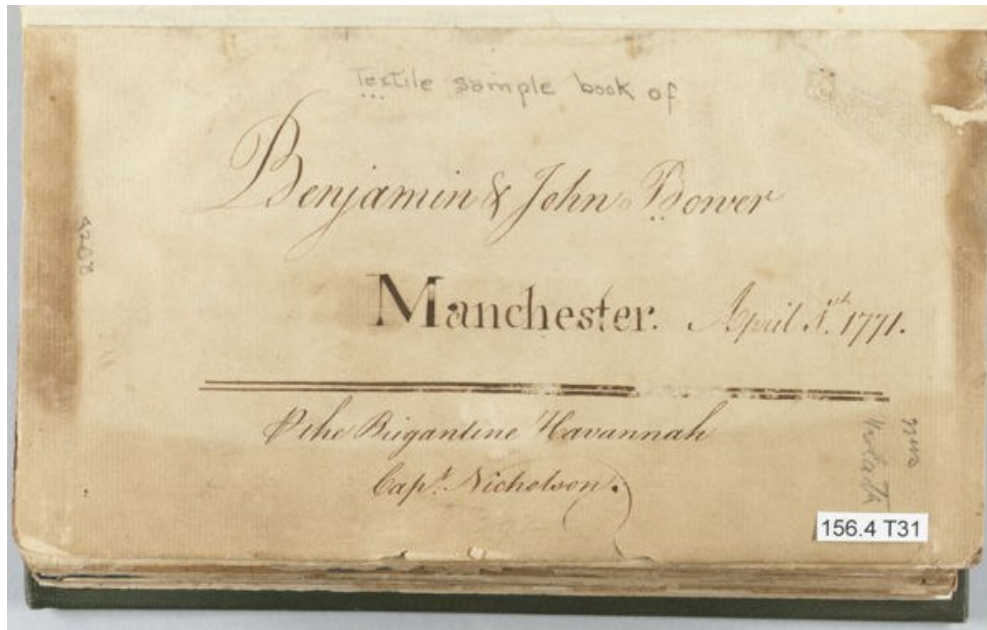 Textile sample book of
Benjamin & John Bower
Manchester. April 5.th 1771.
⅌ the Brigantine Havannah
Capt. Nicholson.
4268
156.4 T31